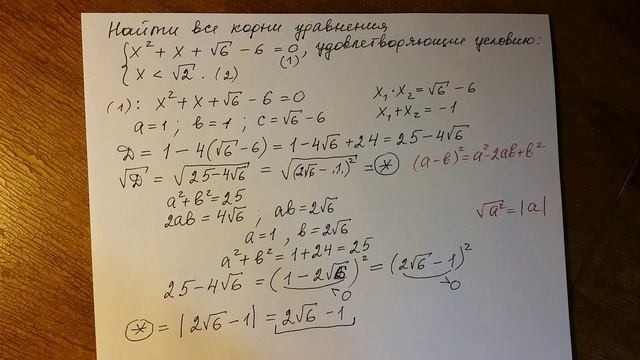 Найти все корни уравнения
{x² + x + √6 - 6 = 0, удовлетворяющие условию:
(1)
{x < √2. (2)
(1): x² + x + √6 - 6 = 0
x₁·x₂ = √6 - 6
a = 1; b = 1; c = √6 - 6
x₁ + x₂ = -1
D = 1 - 4(√6 - 6) = 1 - 4√6 + 24 = 25 - 4√6
√D = √(25 - 4√6) = √((2√6 - 1)²) = (*)
(a - b)² = a² - 2ab + b²
a² + b² = 25
2ab = 4√6, ab = 2√6
√a² = |a|
a = 1, b = 2√6
a² + b² = 1 + 24 = 25
25 - 4√6 = (1 - 2√6)² = (2√6 - 1)²
<0 >0
(*) = |2√6 - 1| = 2√6 - 1